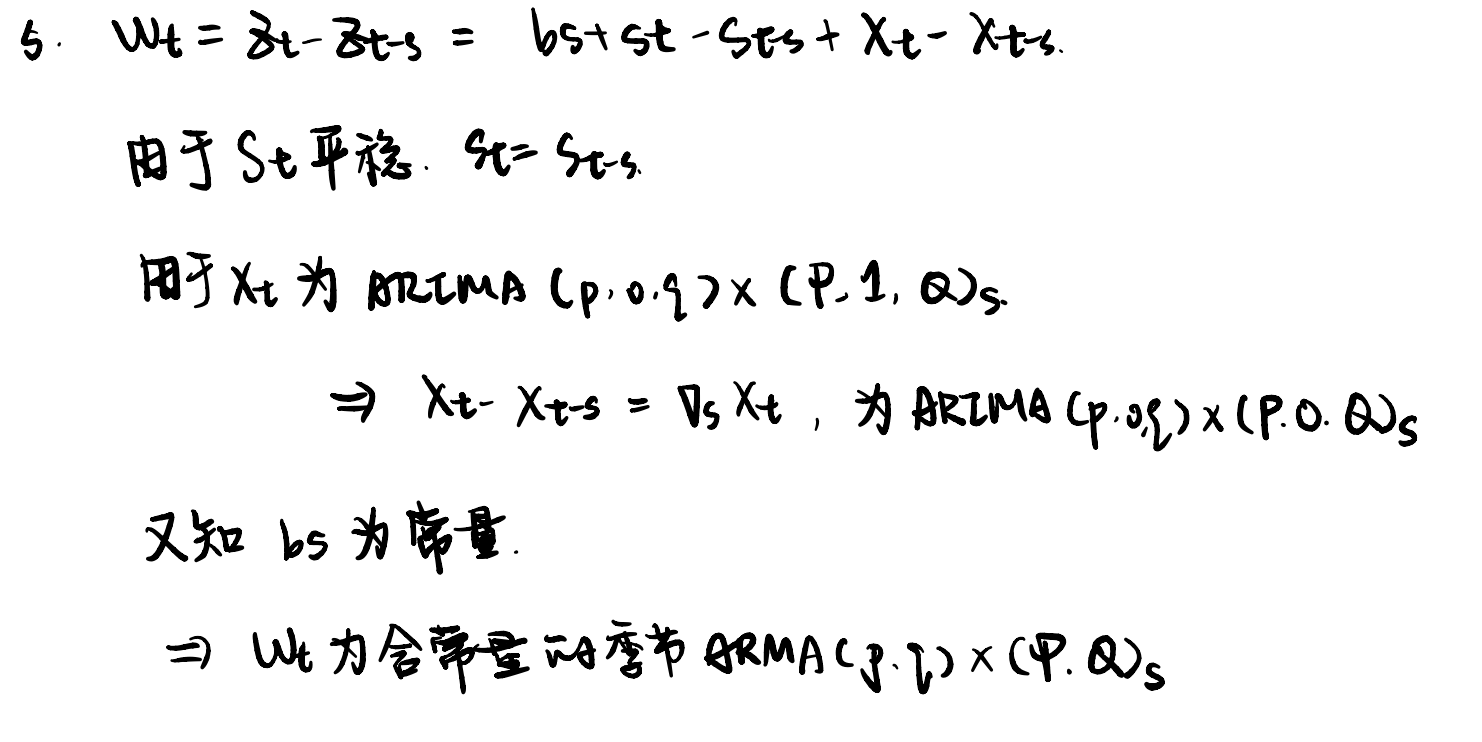 5. Wt = Zt - Zt-s = bs + St - St-s + Xt - Xt-s.
由于 St 平稳. St = St-s.
由于 Xt 为 ARIMA (p.0.q) × (P.1.Q)s.
⇒ Xt - Xt-s = ∇s Xt , 为 ARIMA (p.0,q) × (P.0.Q)s
又知 bs 为常量.
⇒ Wt 为含常量的季节 ARMA (p.q) × (P.Q)s